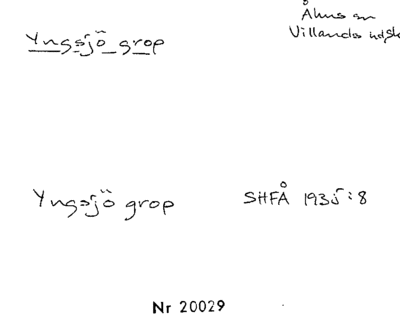 Yngsjö grop
Åhus sn
Villands
Yngsjö grop SHFÅ 1935:8
Nr 20029